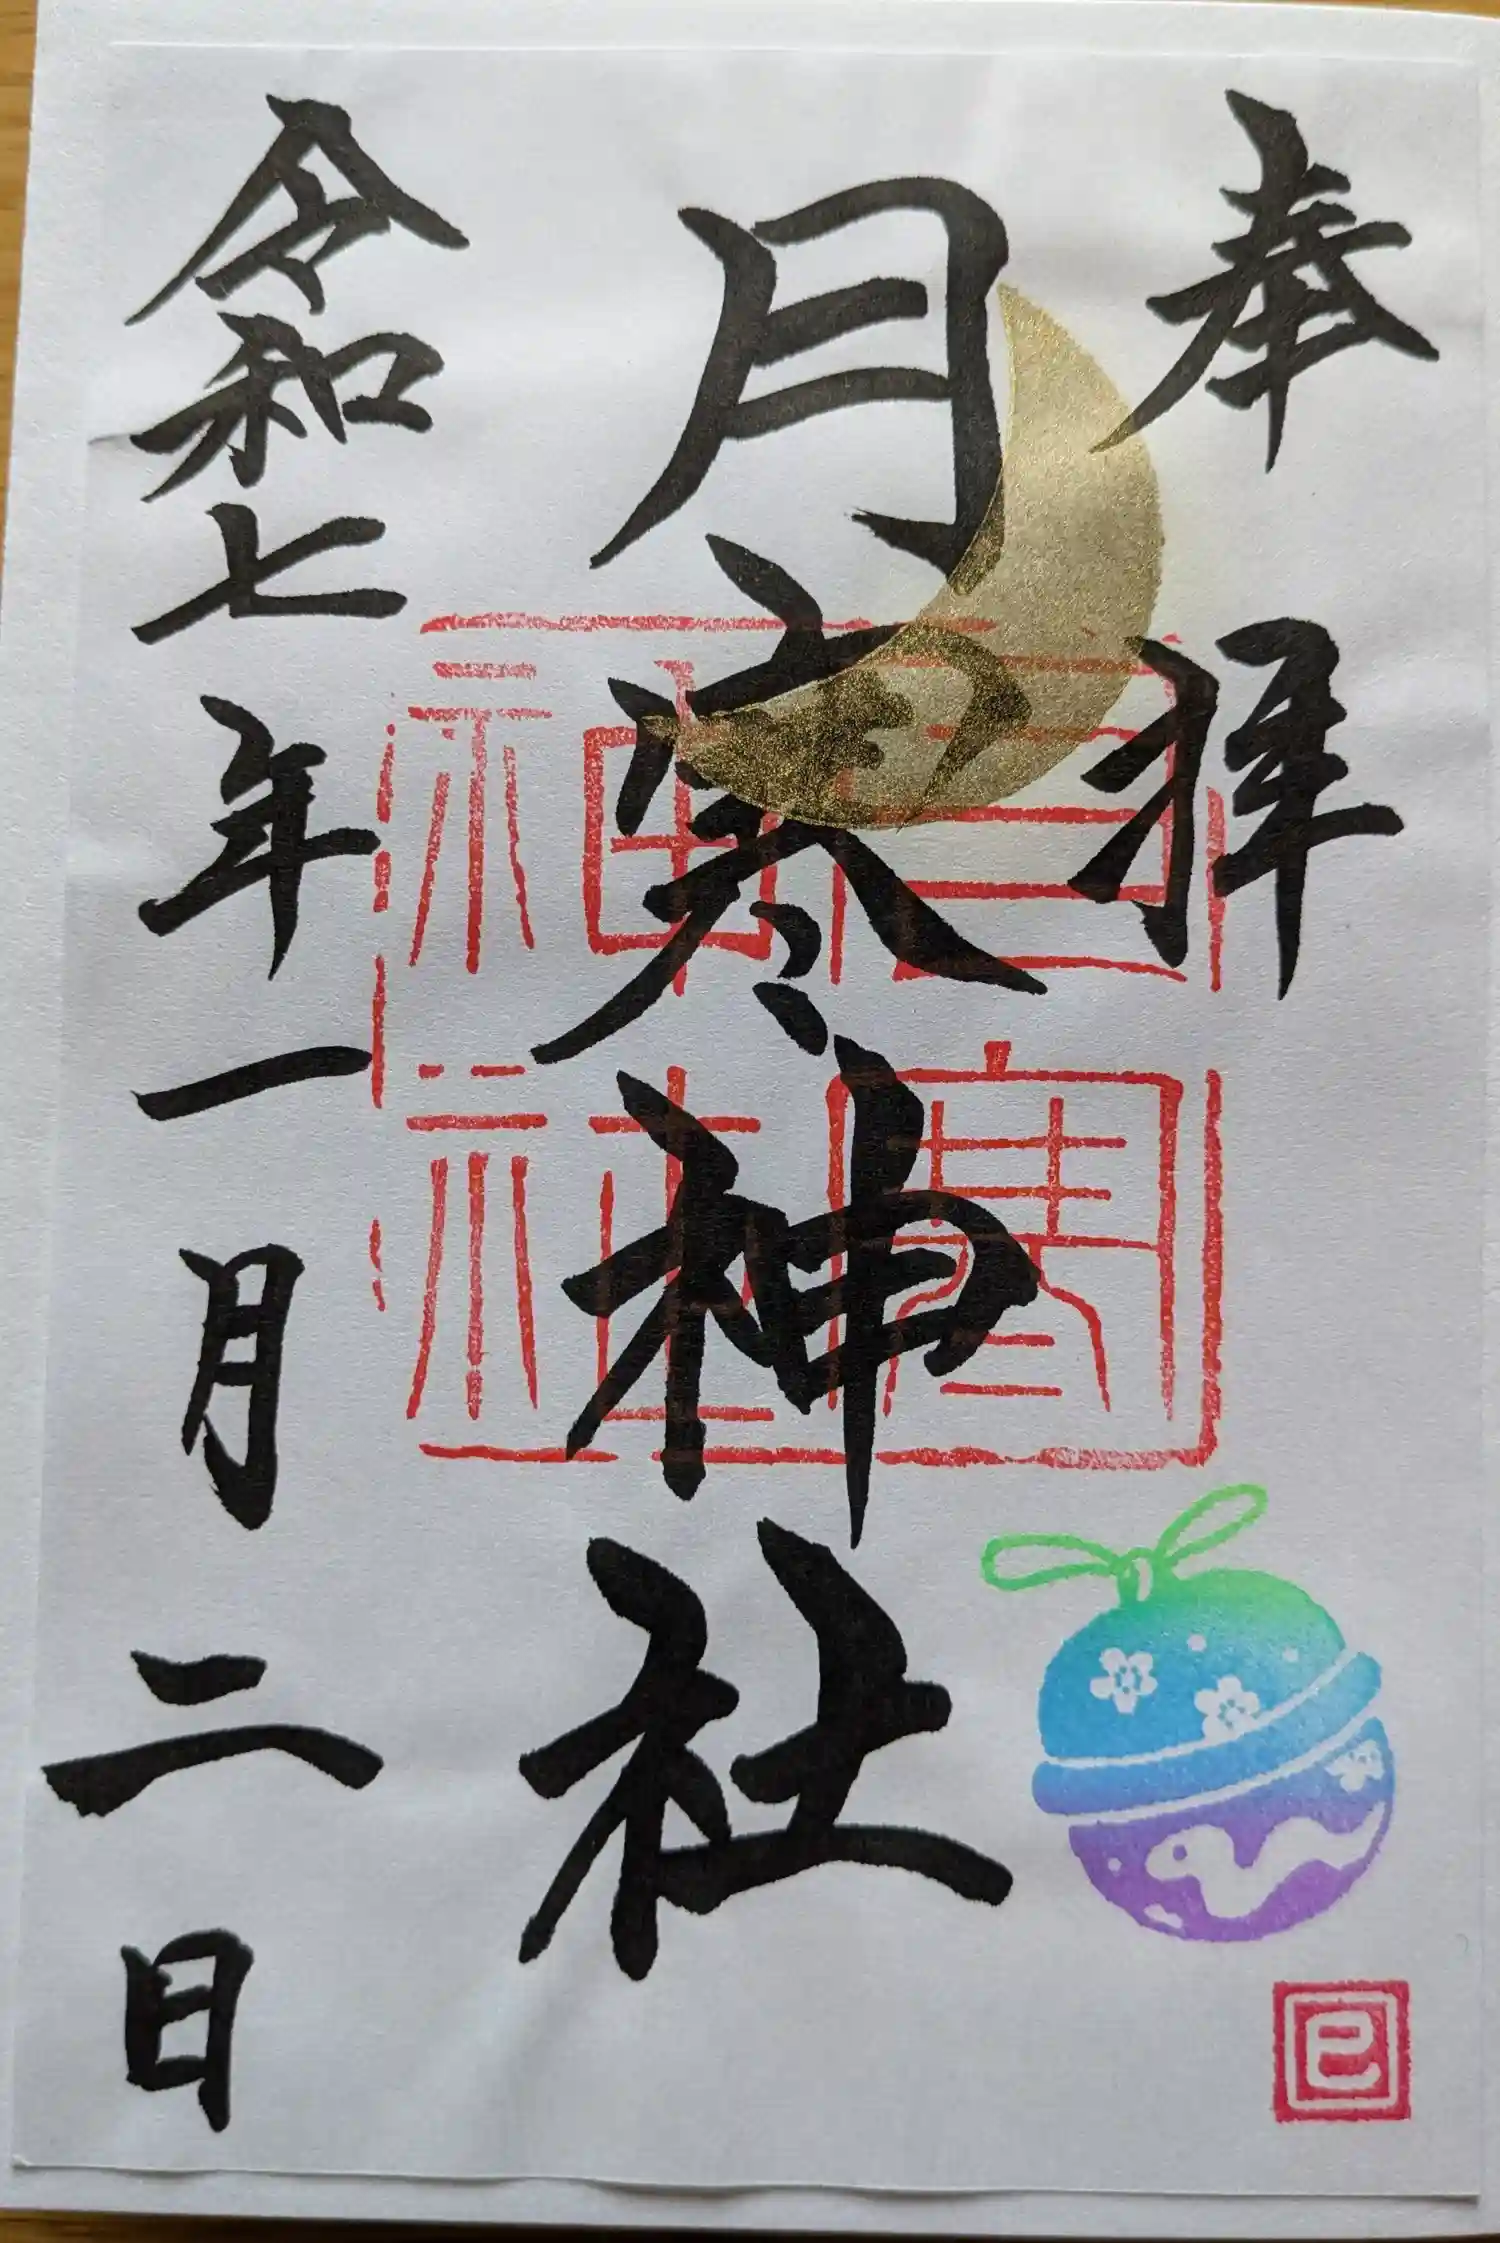 奉拝
月寒神社
月寒神社
巳
令和七年一月二日